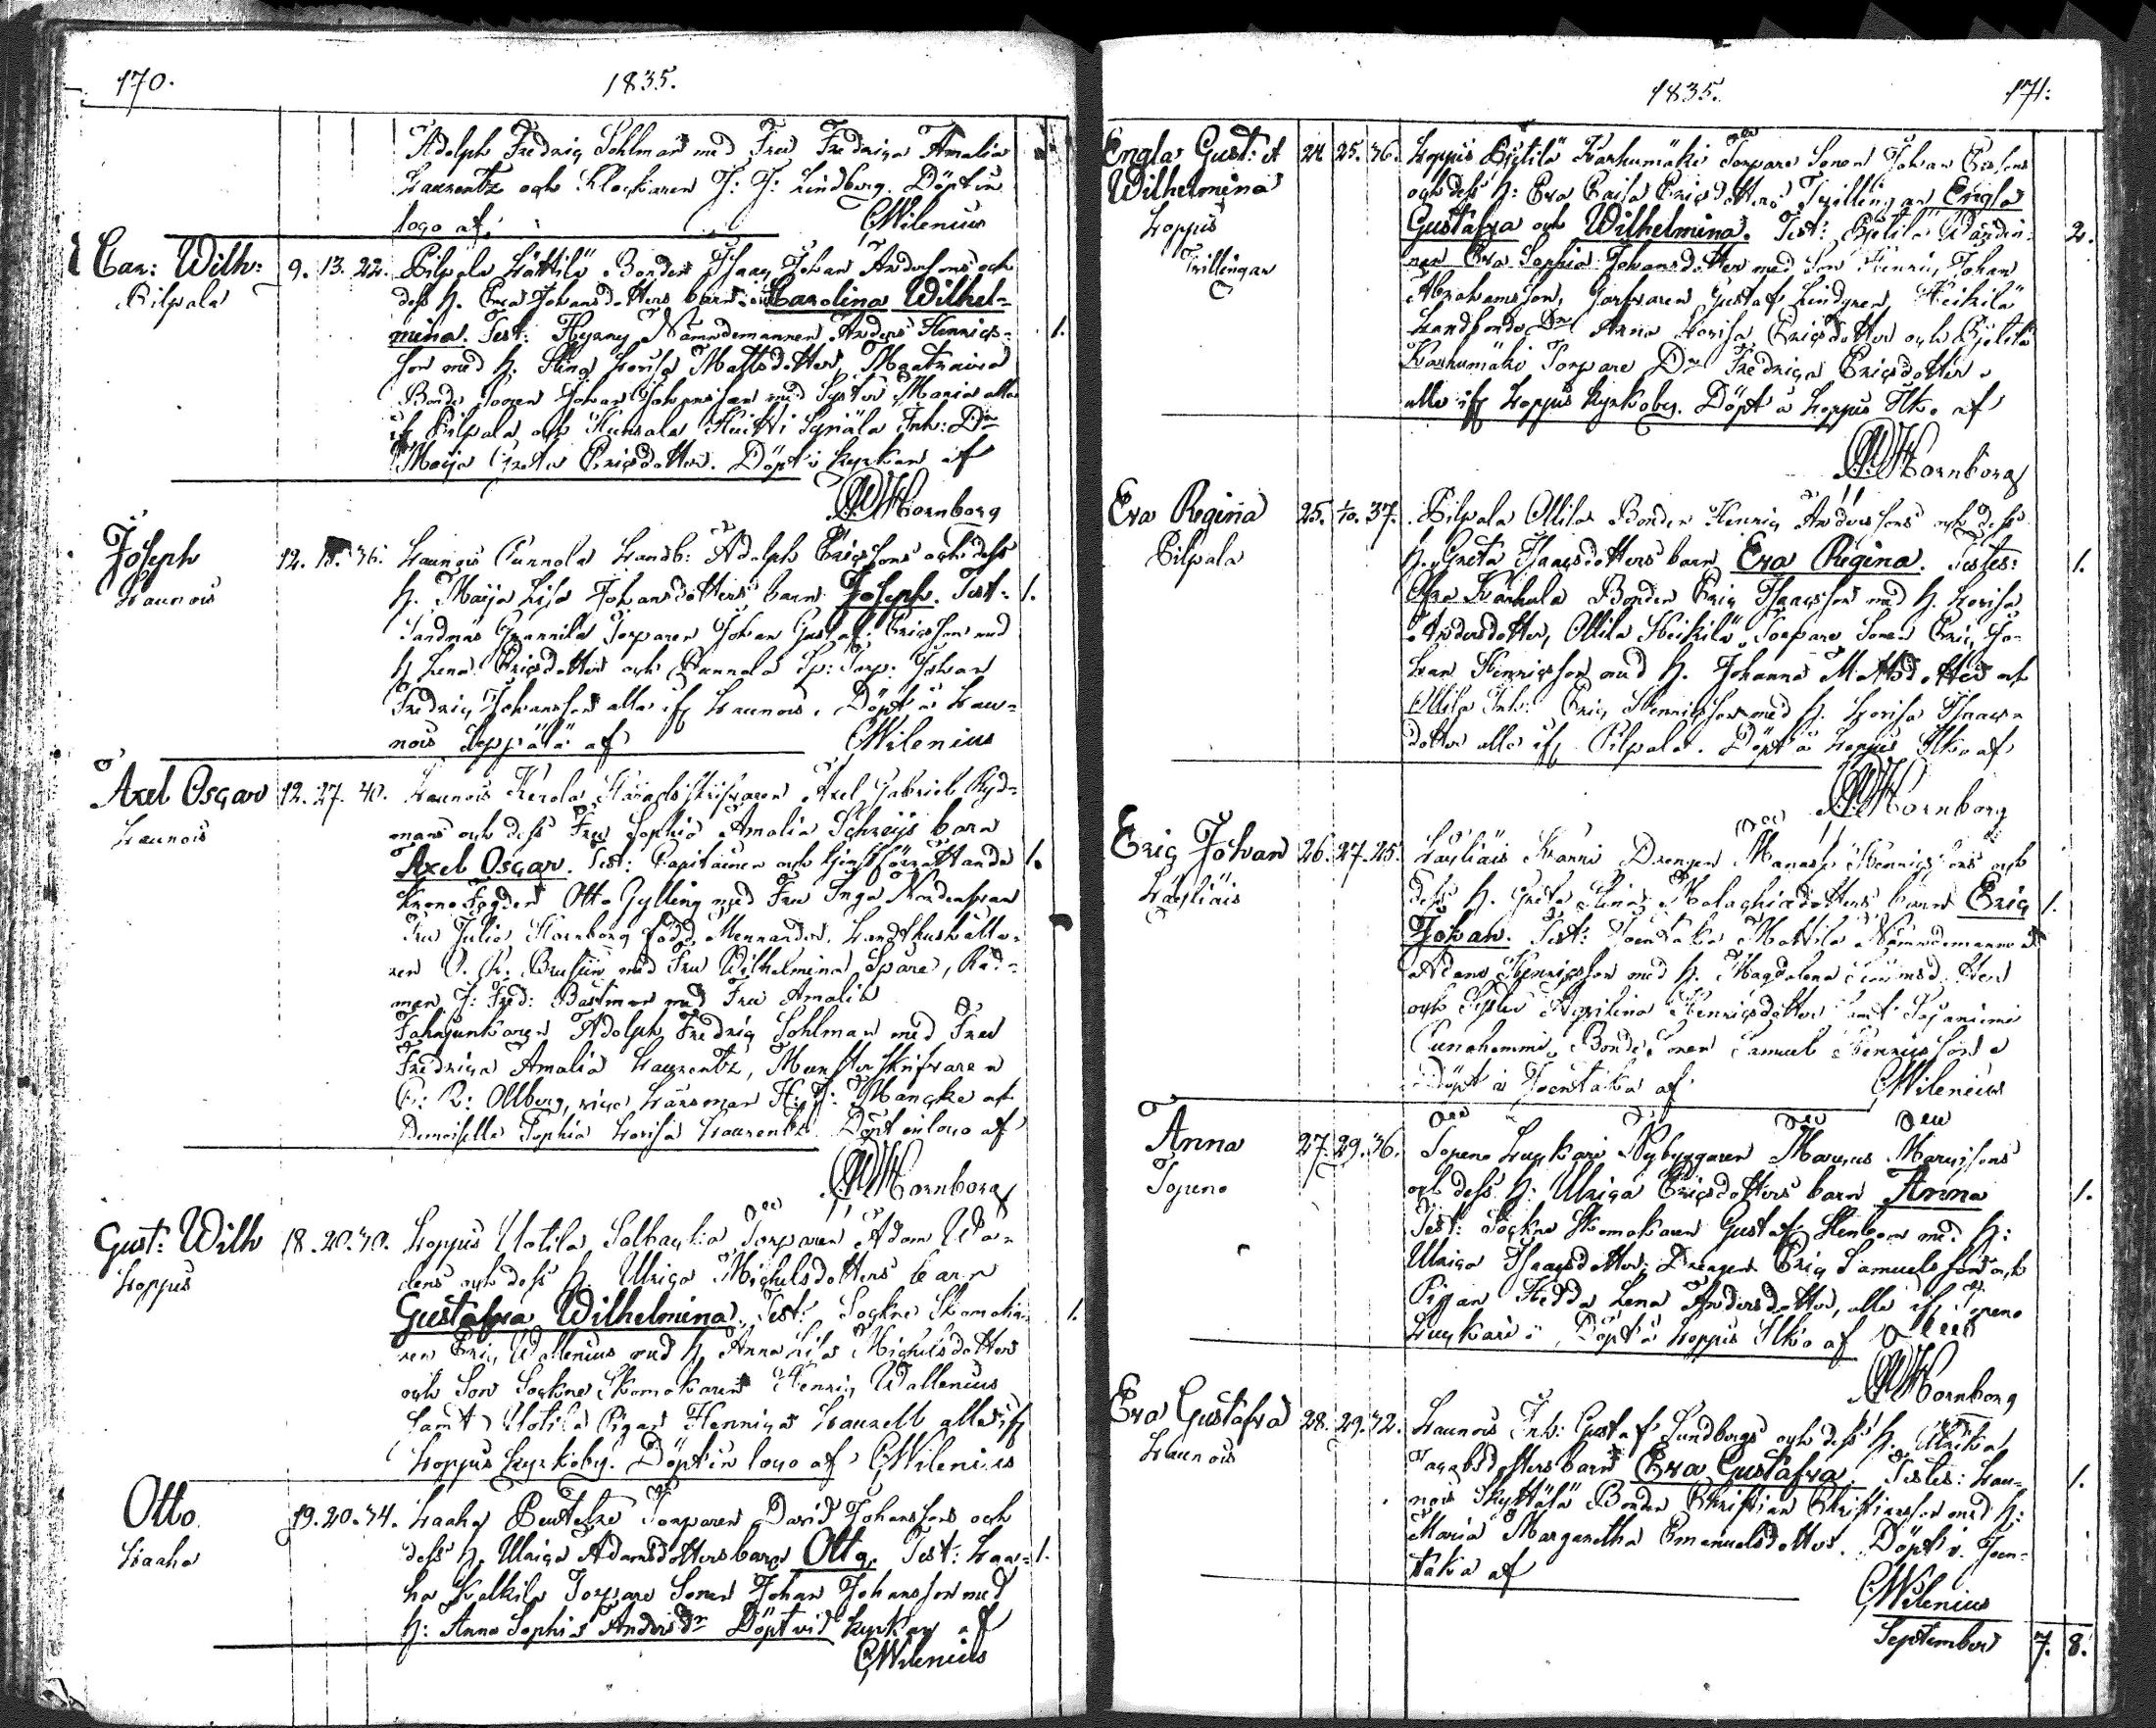 170.
1835.
Adolph Fredric Sohlman med Fru Fredrica Amalia
Laurentz och Klockaren J: J: Lindberg. Döpt in
loco af
CWilenius
Car: Wilh:
Pilpala
9. 13. 22.
Pilpala Lättilä Bonden Isaac Johan Andersons och
dess h. Eva Johansdotters barn Carolina Wilhel=
mina. Test: Hyrsy Nämndemannen Anders Henrics=
son med h. Stina Lovisa Mattsdotter,
Bonde Sonen Johan Johansson med Syster Maria alla
if Pilpala och Syrjälä Inh: Dr
Maija Greta Ericsdotter. Döpt i kyrkan af
1.
Hornborg
Joseph
Launois
12. 36.
Launois Pannola Landb: Adolph Ericssons och dess
h. Maija Lisa Johansdotters barn Joseph. Test:
1.
Torparen Johan Gustaf Ericsson med
h Lena Ericsdotter och Pannola Sp: Torp: Johan
Fredric Johansson alla if Launois. Döpt å Lau=
nois Seppälä af
CWilenius
Axel Oscar
Launois
12. 27. 40.
Launois Kerola Häradsskrifvaren Axel Gabriel Ryd=
mans och dess Fru Sophia Amalia Schreijs barn
Axel Oscar. Test: Capitainen och tjenstförrättande
1.
Krono Fogden Otto Gylling med Fru Inga Nordensvan
Fru Julia Hornborg född Mennander, Landthushålla=
ren med Fru Wilhelmina Spåre, Råd=
man J: Fred: Bastman med Fru Amalia
Fahnjunkaren Adolph Fredric Sohlman med Fru
Fredrica Amalia Laurentz, Munsterskrifvaren
Ollberg, vice Länsman H: J: Mancke och
Demoiselle Sophia Lovisa Laurentz. Döpt in loco af
Hornborg
Gust: Wilh
Loppis
18. 20. 30.
Loppis Uotila Torparen Adam
och dess h. Ulrica Michelsdotters barn
Gustafva Wilhelmina. Test: Sockne Skomaka=
1.
ren Eric Wallenius med h. Anna Lisa Michelsdotter
och Son Sockne Skomakaren Henric Wallenius
samt Uotila Pigan Henrica Laurell alla if
Loppis Kyrkoby. Döpt in loco af CWilenius
Otto
Laaha
19. 20. 34.
Laaha Torparen David Johanssons och
dess h. Ulrica Adamsdotters barn Otto. Test: Laa=
1.
ha Torpare Sonen Johan Johansson med
h: Anna Sophia Andersdr Döpt vid kyrkan af
CWilenius
1835.
171.
Engla Gust: et
Wilhelmina
Loppis
Trillingar
24. 25. 36.
Loppis Pjetilä Karhumäki Torpare Sonen Johan Ersons
och dess h: Eva Caisa Ericsdotters Tvillingar Engla
Gustafva och Wilhelmina. Test: Pjetilä Wärdin=
2.
nan Eva Sophia Johansdotter med Son Henric Johan
Abrahamsson, Garfvaren Gustaf Lindgren, Heikilä
Landbonde Dr Anna Lovisa Ericsdotter och Pjetilä
Karhumäki Torpare Dr Fredrica Ericsdotter
alla if Loppis Kyrkoby. Döpt å Loppis Ilko af
Hornborg
Eva Regina
Pilpala
25. 1/10. 37.
Pilpala Ollila Bonden Henric Anderssons och dess
h. Greta Isaacsdotters barn Eva Regina. Testes:
1.
Karhula Bonden Eric Isaacsson med h. Lovisa
Andersdotter, Ollila Heikilä Torpare Sonen Eric Jo=
han Henricsson med h. Johanna Mattsdotter och
Ollila Inh: Eric Henricsson med h. Lovisa Isaacs=
dotter alla if Pilpala. Döpt å Loppis Ilko af
Hornborg
Eric Johan
Läyliäis
26. 27. 25.
Läyliäis Drengen Manasse Henricssons och
dess h. Greta Stina Malachiadotters barn Eric
1.
Johan. Test: Joentaka Mattila Nämndemannen
Adam Henricsson med h. Magdalena
och Syster Henricsdotter samt Sajaniemi
Bonde Sonen Samuel Henricsson
Döpt å Joentaka af
CWilenius
Anna
Topeno
27. 29. 36.
Topeno Luykari Nybyggaren Marcus Marcssons
och dess h: Ulrica Ericsdotters barn Anna
1.
Test: Sockne Skomakaren Gustaf Stenbom med h:
Ulrica Isaacsdotter, Drengen Eric Samuelsson och
Pigan Hedda Lena Andersdotter, alla if Topeno
Luykari Döpt å Loppis Ilko af
Hornborg
Eva Gustafva
Launois
28. 29. 32.
Launois Inh: Gustaf Sundbergs och dess h. Ulrika
Jacobsdotters barn Eva Gustafva. Testes: Lau=
1.
nois Skyttälä Bonden Christian Christiansson med h:
Maria Margaretha Emanuelsdotter. Döpt i Joen=
taka af
CWilenius
September
7. 8.